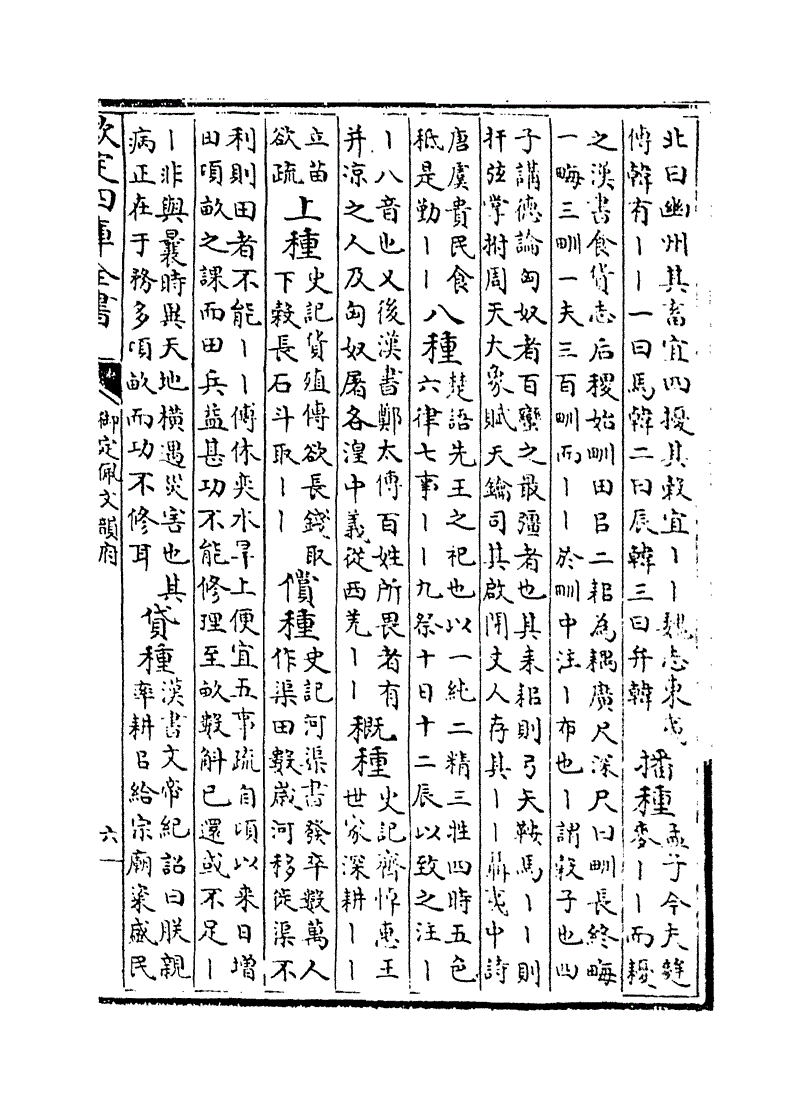 北曰幽州其畜宜四擾其穀宜丨丨魏志東夷
傳韓有丨丨一曰馬韓二曰辰韓三曰弁韓
播種
孟子今夫麰
麥丨丨而耰
之漢書食貨志后稷始甽田㠯二耜為耦廣尺深尺曰甽長終晦
一晦三甽一夫三百甽而丨丨於甽中注丨布也丨謂穀子也四
子講德論匈奴者百蠻之最彊者也其耒耜則弓矢鞍馬丨丨則
扞弦掌拊周天大象賦天鑰司其啟閉丈人存其丨丨聶夷中詩
唐虞貴民食
秪是勤丨丨
八種
楚語先王之祀也以一純二精三牲四時五色
六律七事丨丨九祭十日十二辰以致之注丨
丨八音也又後漢書鄭太傳百姓所畏者有
并涼之人及匈奴屠各湟中義從西羌丨丨
概種
史記齊悼惠王
世家深耕丨丨
立苗
欲疏
上種
史記貨殖傳欲長錢取
下穀長石斗取丨丨
償種
史記河渠書發卒數萬人
作渠田數歲河移徙渠不
利則田者不能丨丨傅休奕水旱上便宜五事疏自頃以來日增
田頃畝之課而田兵益甚功不能修理至畝數斛已還或不足丨
丨非與曩時異天地橫遇災害也其
病正在于務多頃畝而功不修耳
貸種
漢書文帝紀詔曰朕親
率耕㠯給宗廟粢盛民
欽定四庫全書
御定佩文韻府
六一